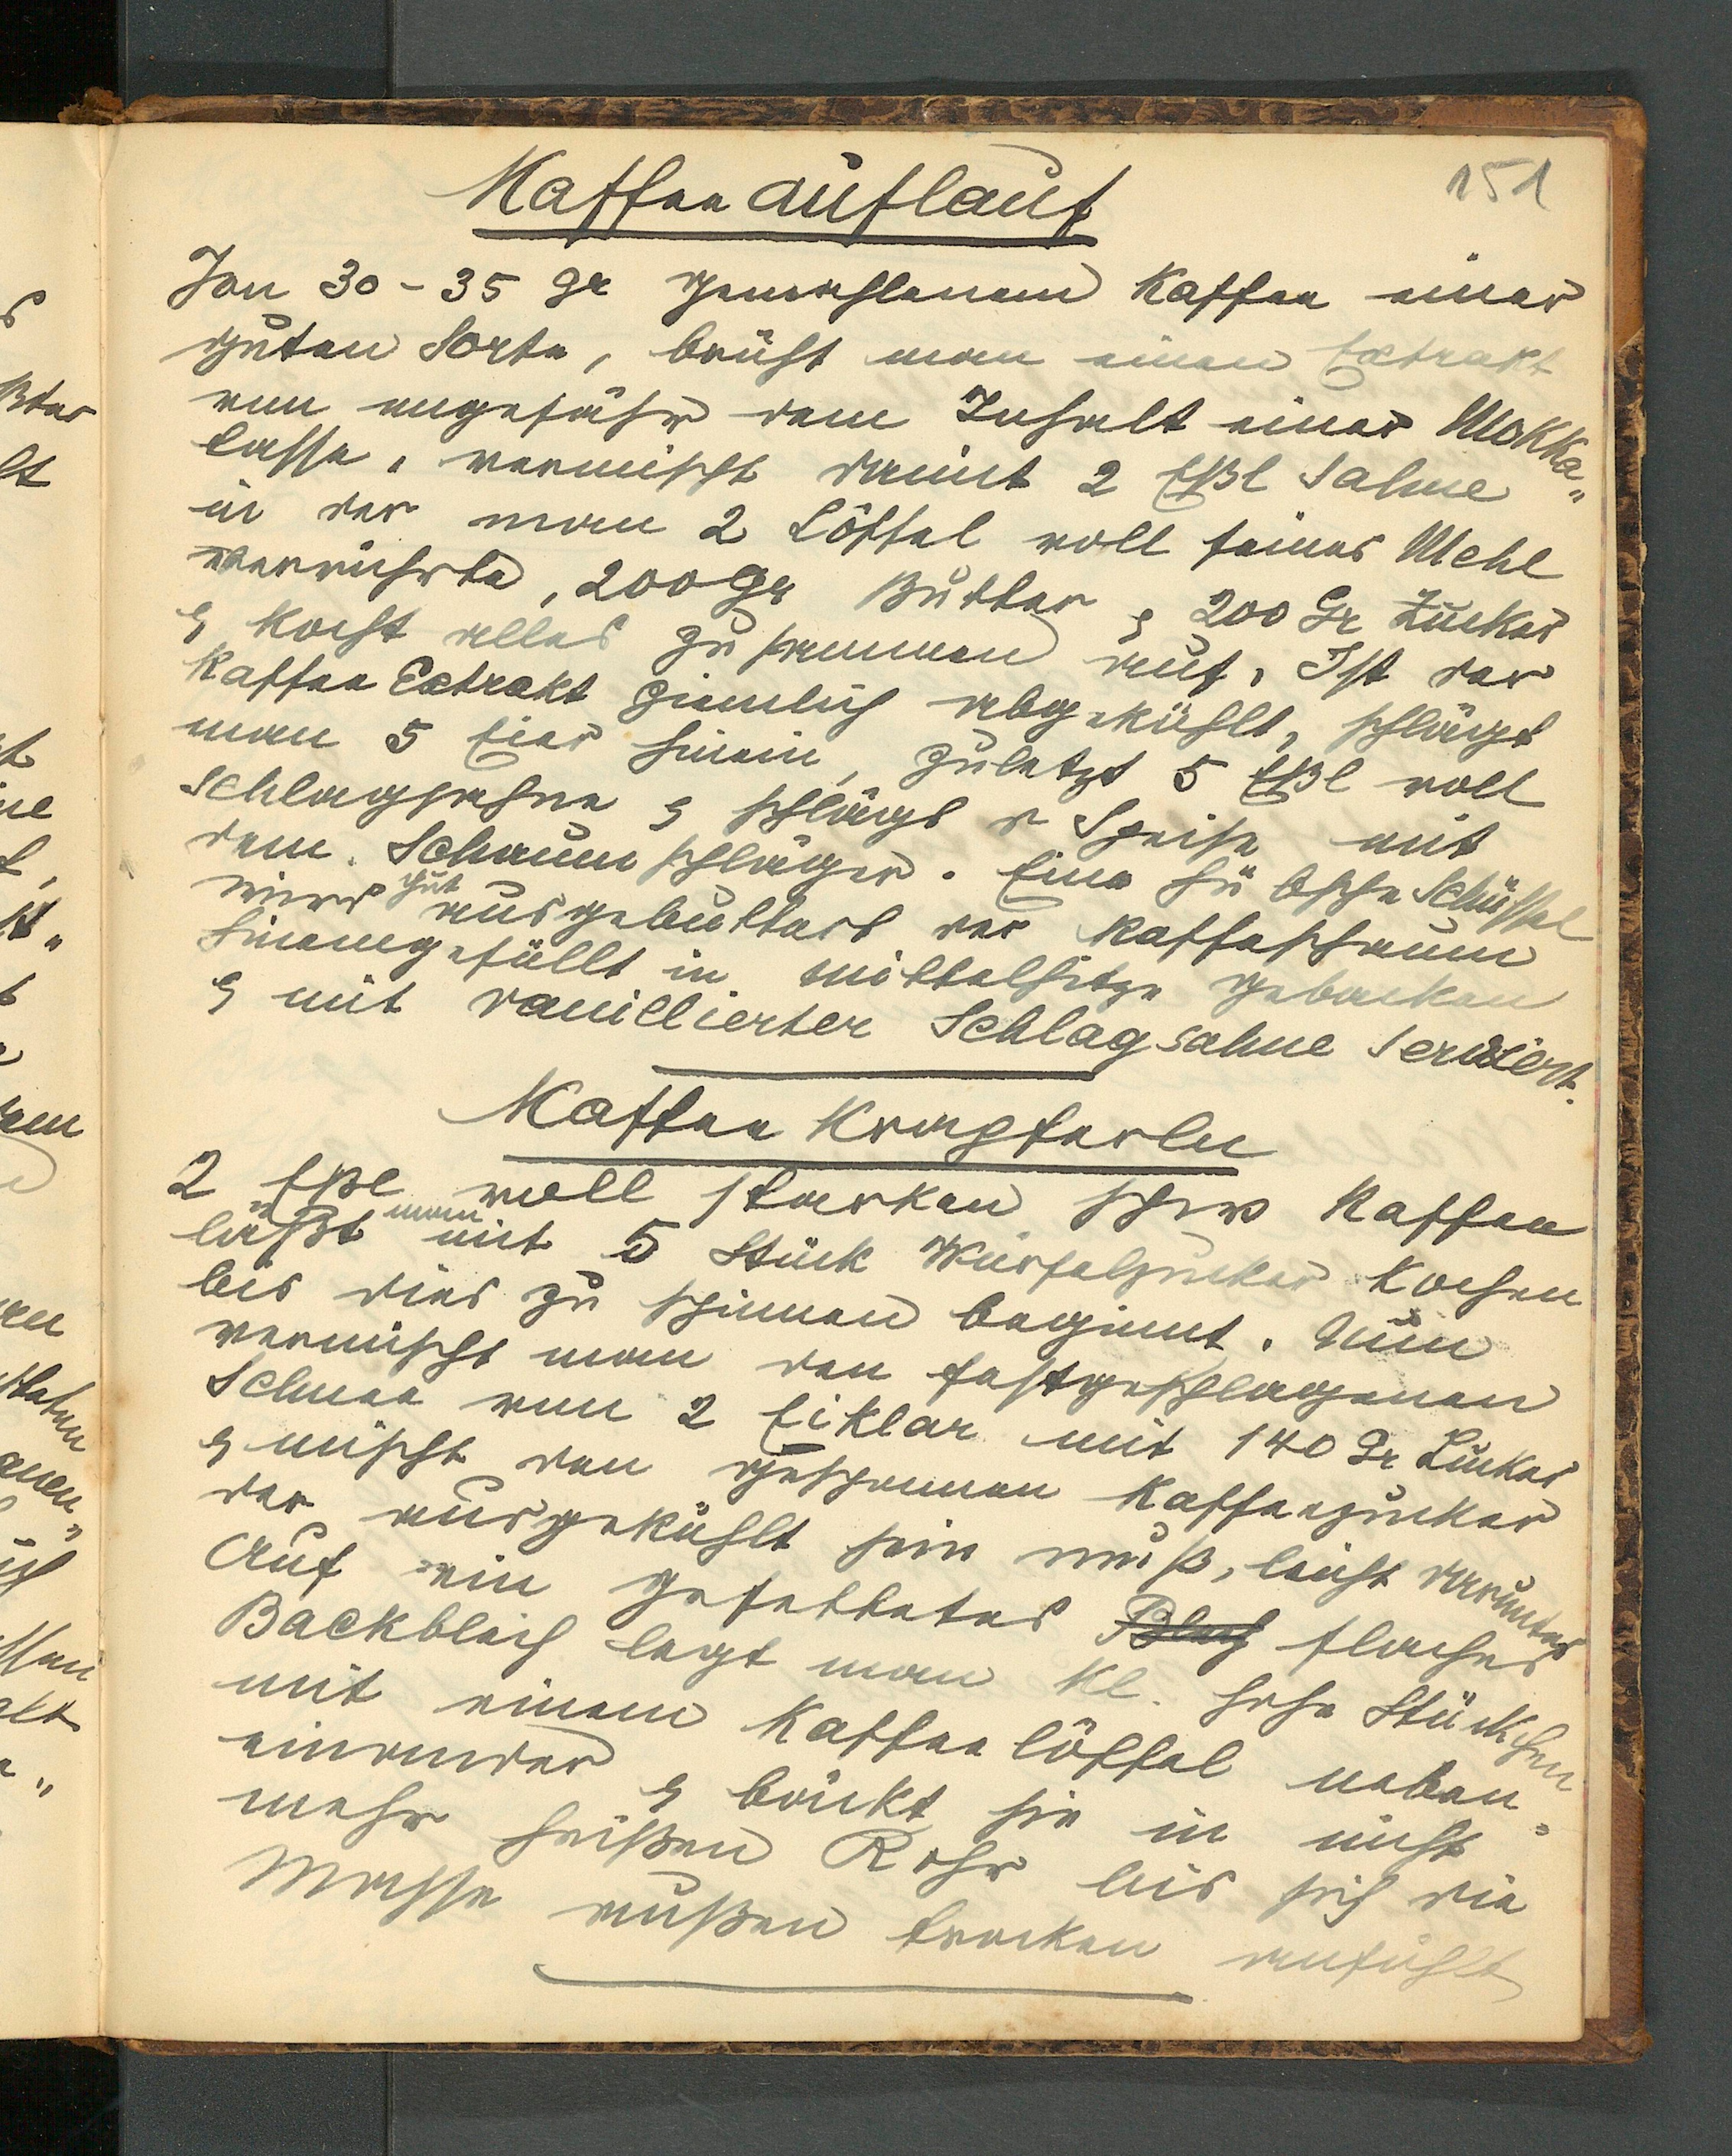 151
Kaffee auflauf
Von 30-35 gr gemahlenem Kaffee einer
guten Sorte, brüht man einen Extrakt
von ungefähr dem Inhalt einer Mokka„
tasse, vermischt damit 2 Eßl Sahne
in der man 2 Löffel voll feines Mehl
verrührte, 200 gr Butter, 200 Gr Zucker
& kocht alles zusammen auf. Ist der
Kaffee Extrakt ziemlich abgekühlt, schlägt
man 5 Eier hinein, zuletzt 5 Eßl voll
Schlagsahne & schlägt d Speise mit
dem Schaumschläger. Eine hübsche Schüssel
wird gut ausgebuttert der Kaffeschaum
hineingefüllt in Mittelhitze gebacken
& mit vanillierter Schlagsahne serviert.
Kaffee Krapferln
2 Eßl voll starken schw Kaffee
läßt man mit 5 Stück Würfelzucker kochen
bis dies zu spinnen beginnt. Nun
vermischt man den festgeschlagenen
Schnee von 2 Eiklar mit 140 Gr Zucker
& mischt den gesponnen Kaffeezucker
der ausgekühlt sein muß, leicht darunter
Auf ein gefettetes Blech flaches
Backblech legt man kl. hohe Stückchen
mit einem Kaffeelöffel neben„
einander & bäckt sie in nicht
mehr heißen Rohr bis sich die
Masse außen trocken anfühlt